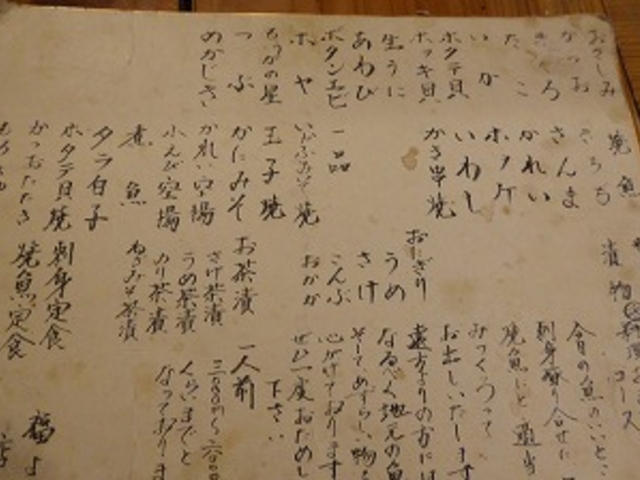 おさしみ
かつお
たこ
いか
ホタテ貝
ホッキ貝
生うに
あわび
ボタンエビ
ホヤ
もうかの星
つぶ
めかじき
焼魚
きちぢ
さんま
かれい
ホッケ
いわし
かき串焼
一品
玉子焼
かにみそ
かれい空揚
小えび空揚
煮魚
タラ白子
ホタテ貝焼
かつおたたき
漬物
おにぎり
うめ
さけ
こんぶ
おかか
お茶漬
さけ茶漬
うめ茶漬
のり茶漬
ねぎみそ茶漬
刺身定食
焼魚定食
コース
今日の魚のいいとこ
刺身盛り合せに
焼魚など適当
みつくろって
お出しいたします
遠方よりの方には
なるべく地元の魚
そしてめずらしい物を
心がけております
ぜひ一度おためし
下さい
一人前
くらいまでと
なっております
福よ